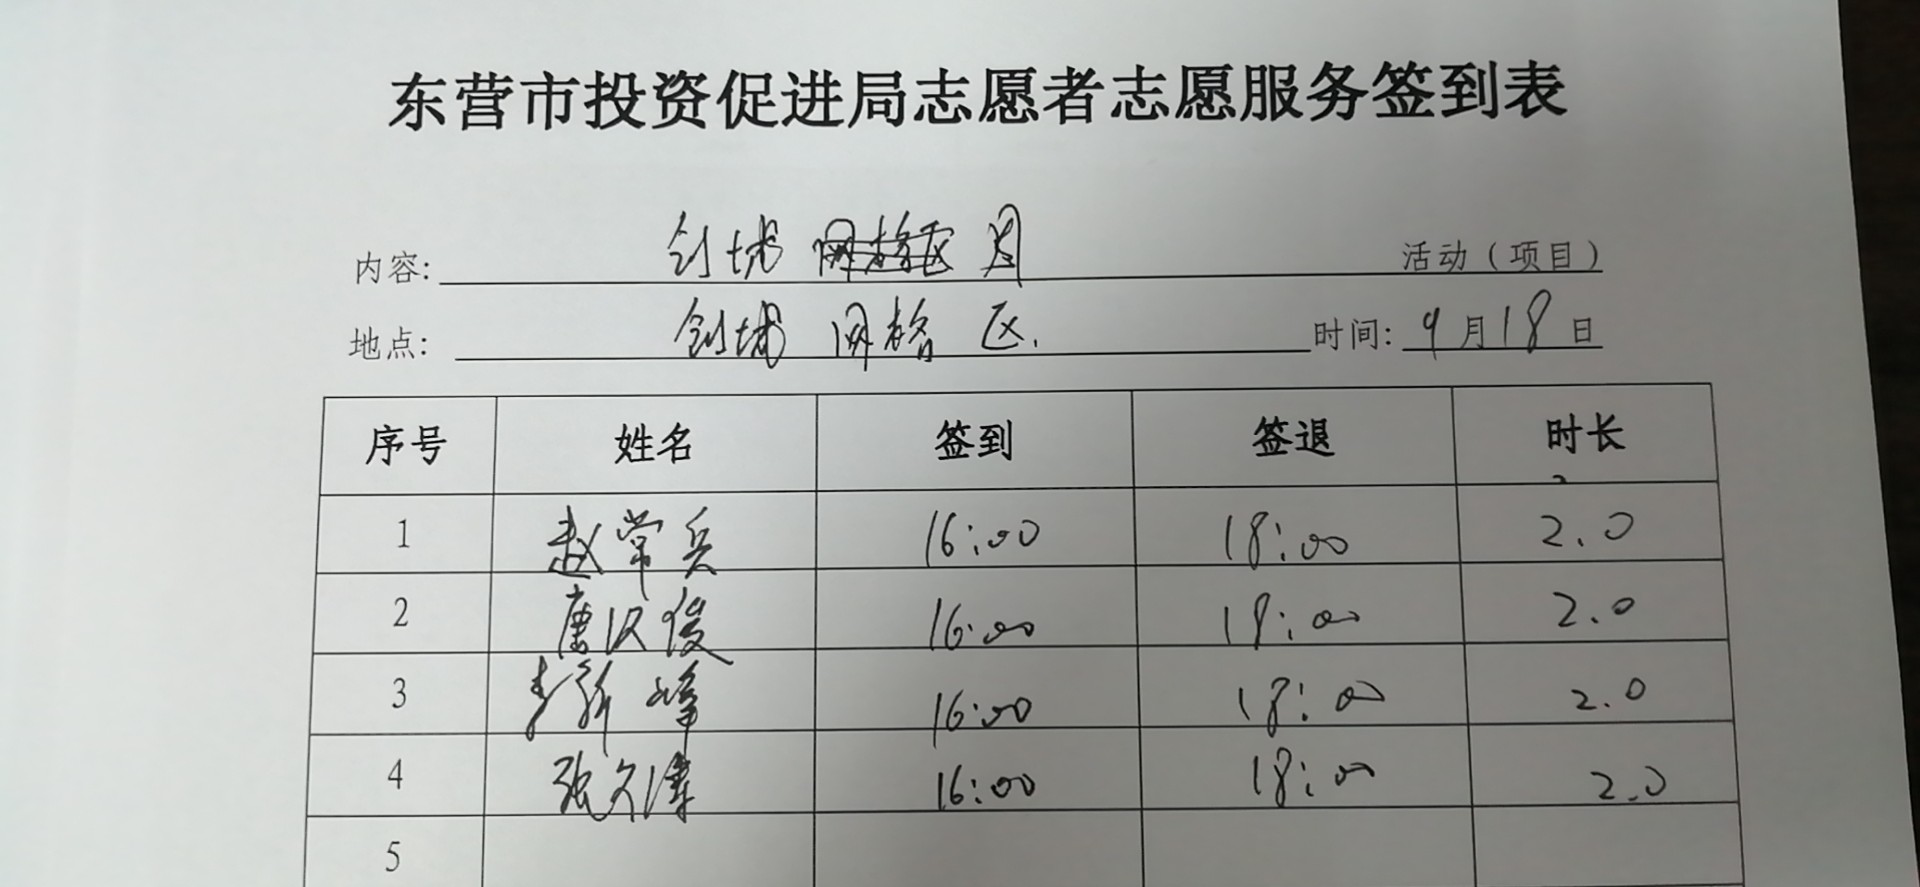 东营市投资促进局志愿者志愿服务签到表
内容: 创城 周 活动（项目）
地点: 创城 网格 区. 时间: 9月18日
序号 姓名 签到 签退 时长
1 赵常兵 16:00 18:00 2.0
2 唐汉俊 16:00 18:00 2.0
3 新峰 16:00 18:00 2.0
4 张久泽 16:00 18:00 2.0
5